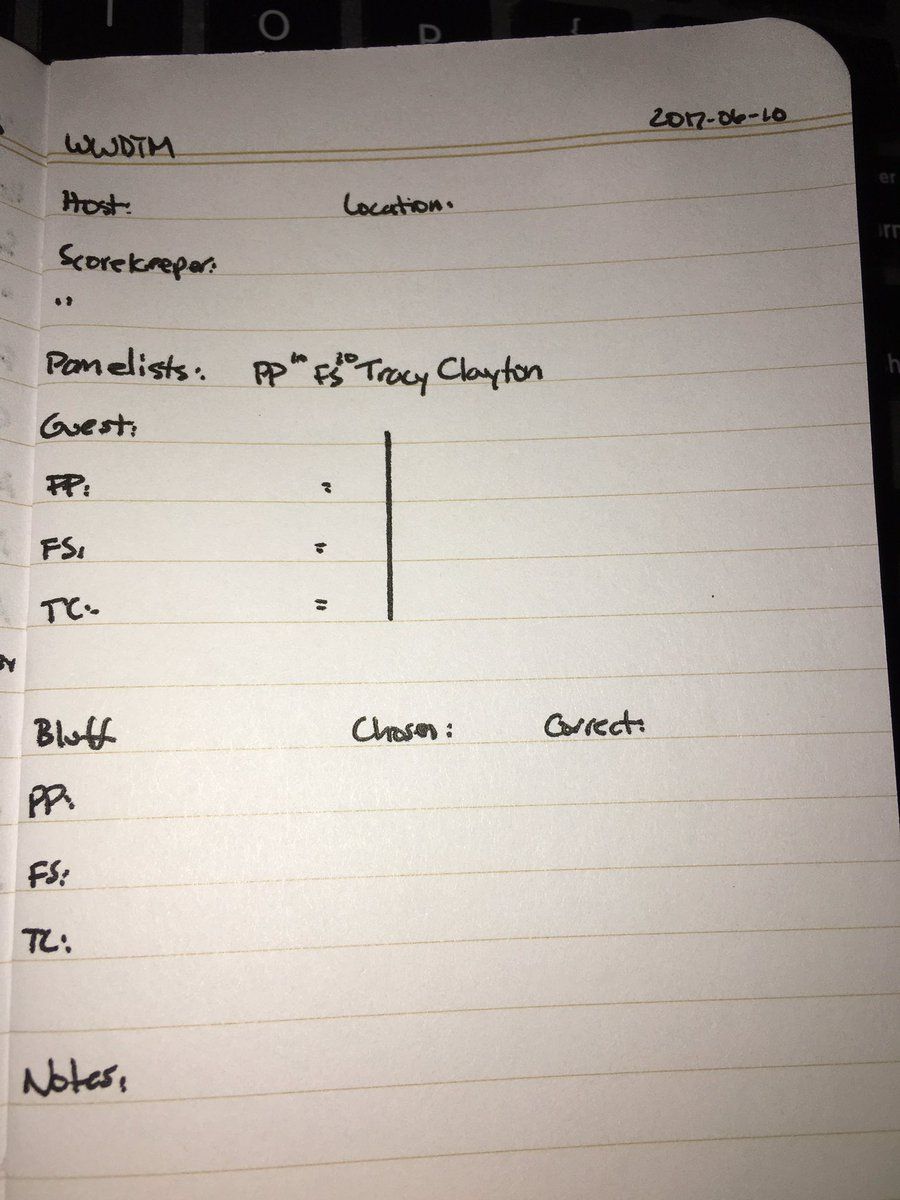 O P {
WWDTM 2017-06-10
Host: Location:
Scorekeeper:
..
Panelists: PP FS Tracy Clayton
Guest:
PP: =
FS: =
TC: =
Bluff Chosen: Correct:
PP:
FS:
TC:
Notes: